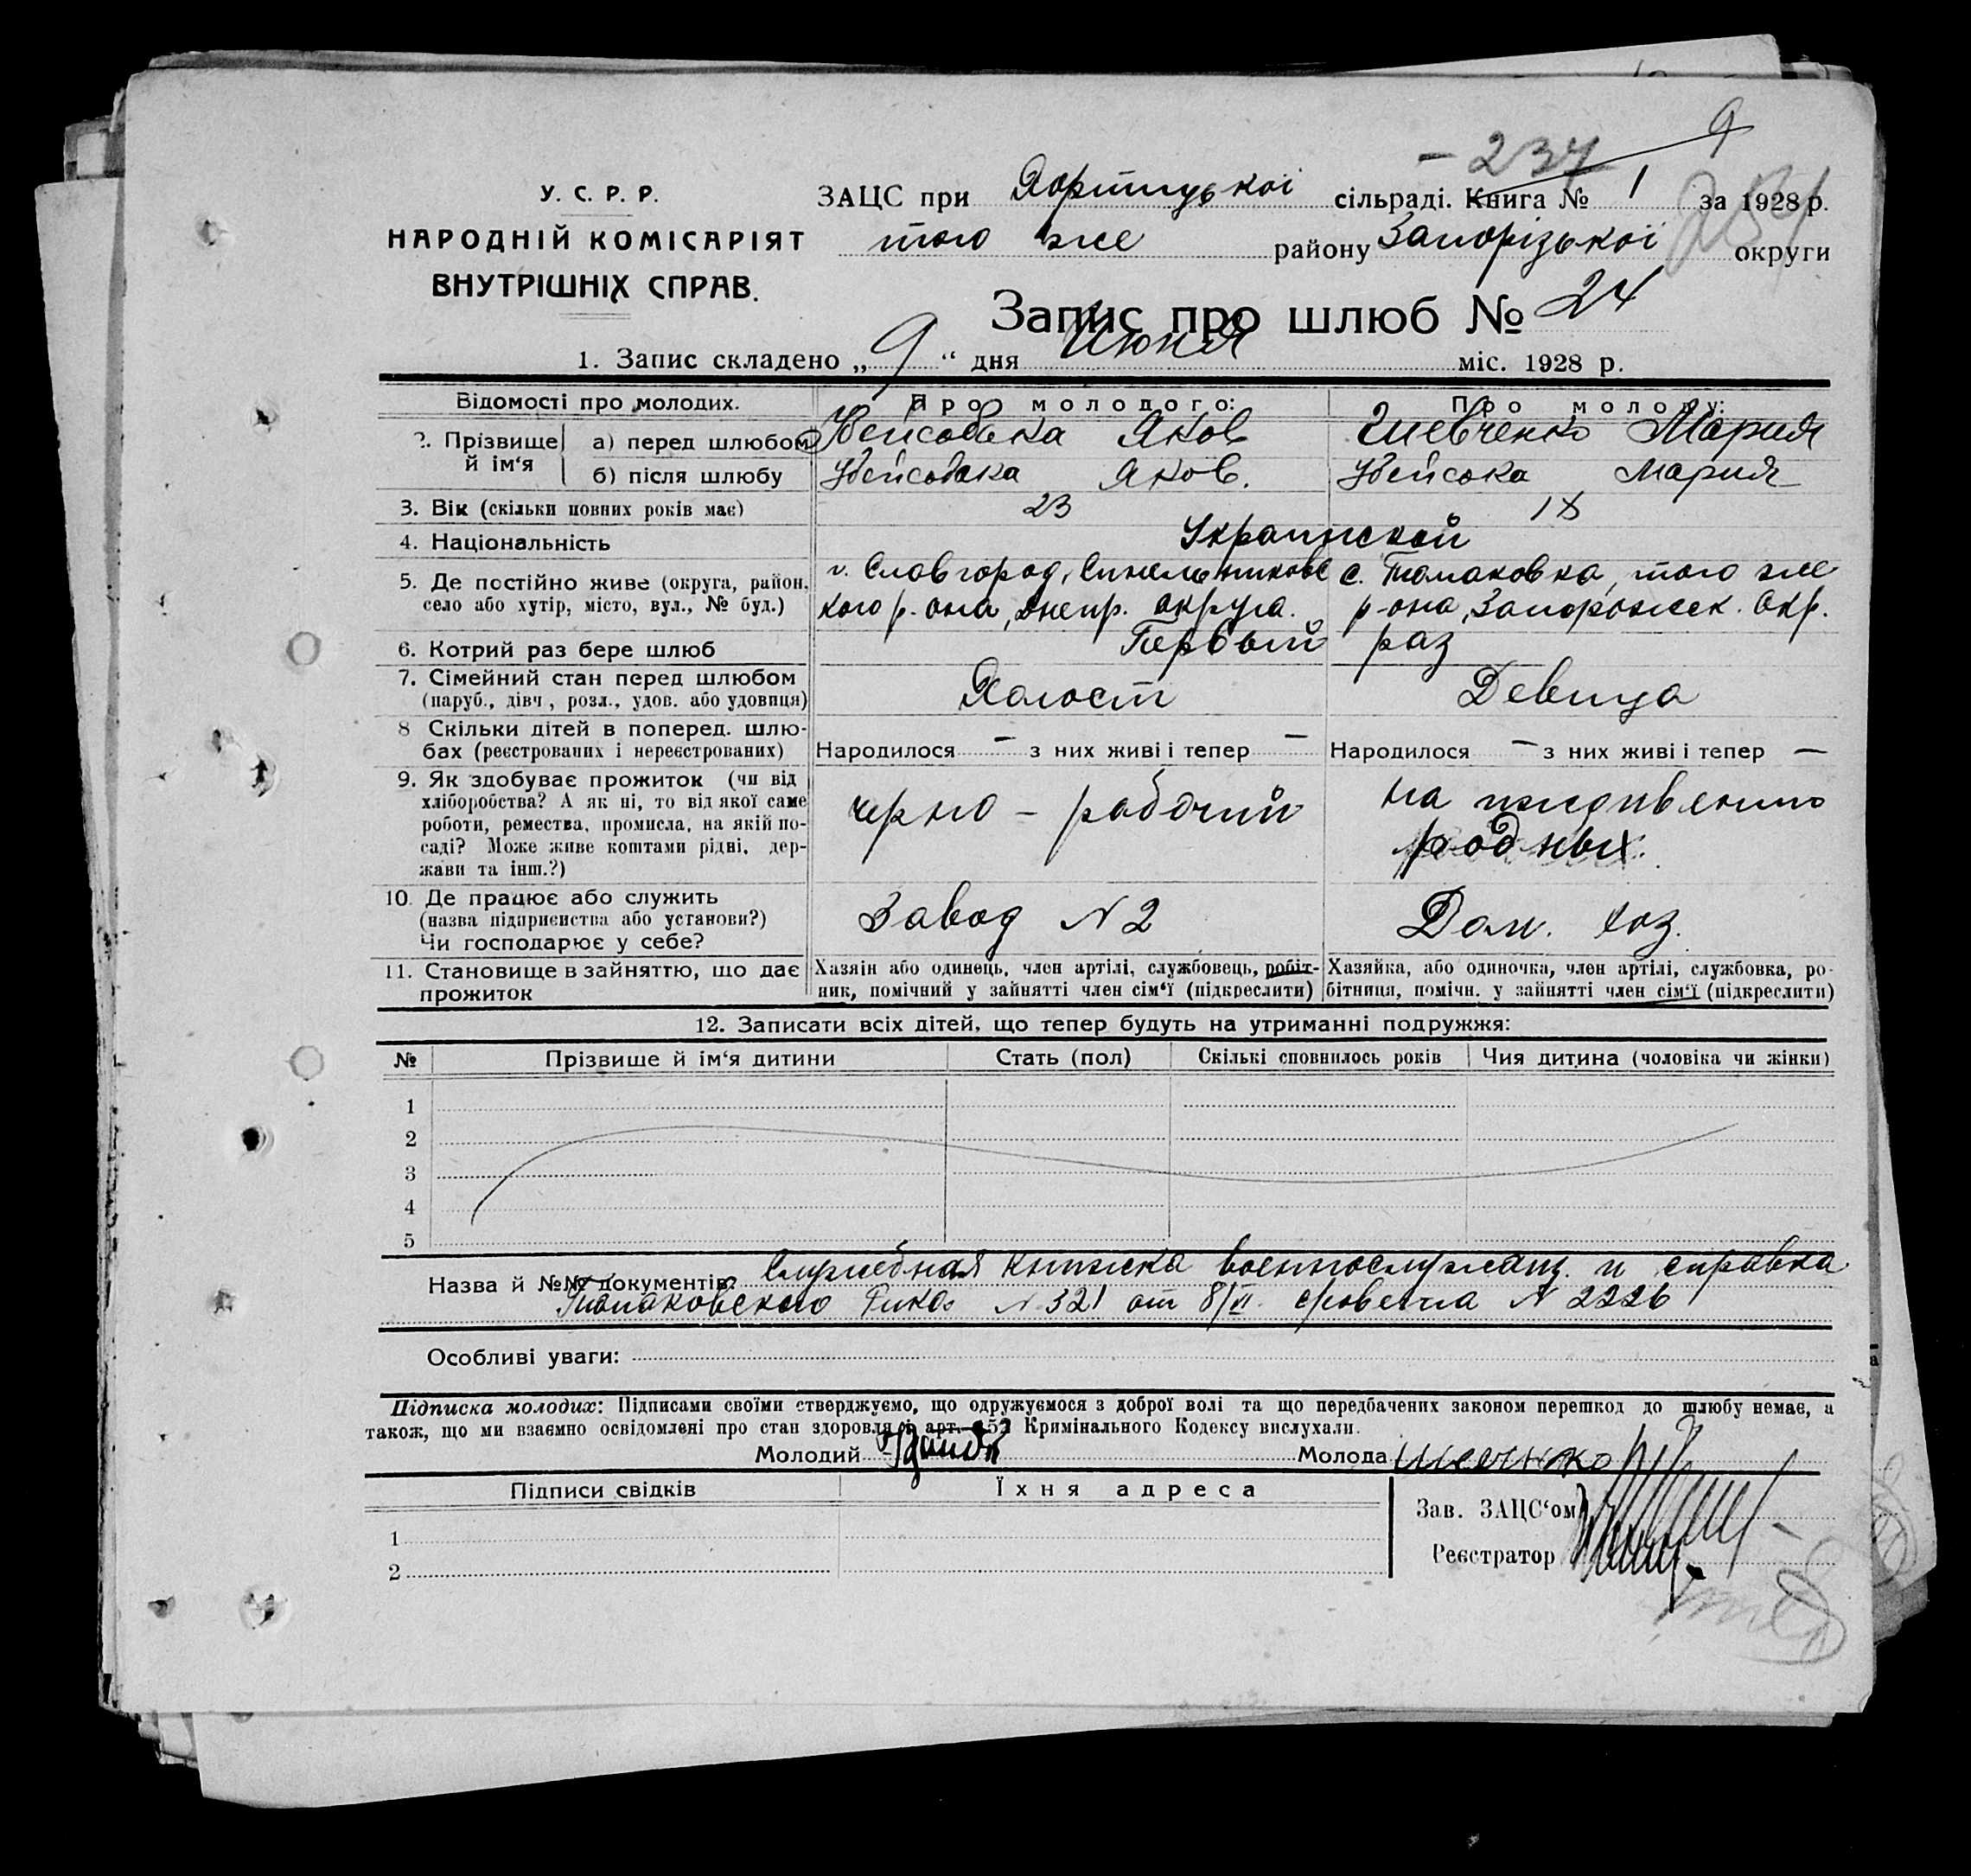 9
- 237
У. С. Р. Р.
НАРОДНІЙ КОМІСАРІЯТ
ВНУТРІШНІХ СПРАВ.
ЗАЦС при Хортицької сільраді. Книга № 1 за 1928 р.
того же району Запорізької округи
Запис про шлюб № 24
1. Запис складено „ 9 “ дня Июня міс. 1928 р.
Відомості про молодих.
Про молодого:
Про молоду:
2. Прізвище й ім‘я
а) перед шлюбом
Яков
Шевченко Мария
б) після шлюбу
Яков.
Мария
3. Вік (скільки повних років має)
23
18
4. Національність
Украинской
5. Де постійно живе (округа, район,
село або хутір, місто, вул., № буд.)
с. Славгород, Синельниковс
кого р-она, Днепр. округа.
с. Томаковка, того же
р-она, Запорожск. Окр.
6. Котрий раз бере шлюб
Первый раз
7. Сімейний стан перед шлюбом
(паруб., дівч, розл., удов. або удовиця)
Холост
Девица
8 Скільки дітей в поперед. шлю-
бах (реєстрованих і нереєстрованих)
Народилося — з них живі і тепер —
Народилося — з них живі і тепер —
9. Як здобуває прожиток (чи від
хліборобства? А як ні, то від якої саме
роботи, ремества, промисла, на якій по-
саді? Може живе коштами рідні, дер-
жави та інш.?)
черно - рабочий
на иждивении
родных.
10. Де працює або служить
(назва підприємства або установи?)
Чи господарює у себе?
Завод N 2
Дом. хоз.
11. Становище в зайняттю, що дає
прожиток
Хазяїн або одинець, член артілі, службовець, робіт-
ник, помічний у зайнятті член сім‘ї (підкреслити)
Хазяйка, або одиночка, член артілі, службовка, ро-
бітниця, помічн. у зайнятті член сім‘ї (підкреслити)
12. Записати всіх дітей, що тепер будуть на утриманні подружжя:
№ Прізвище й ім‘я дитини Стать (пол) Скількі сповнилось років Чия дитина (чоловіка чи жінки)
1
2
3
4
5
Назва й №№ документів: Служебная книжка военнослужащ. и справка
Томаковского Рика N 321 от 8/VI. N 2226
Особливі уваги:
Підписка молодих: Підписами своїми стверджуємо, що одружуємося з доброї волі та що передбачених законом перешкод до шлюбу немає, а
також, що ми взаємно освідомлені про стан здоровля й арт. 152 Кримінального Кодексу вислухали.
Молодий
Молода
Підписи свідків
Їхня адреса
1
2
Зав. ЗАЦС‘ом
Реєстратор